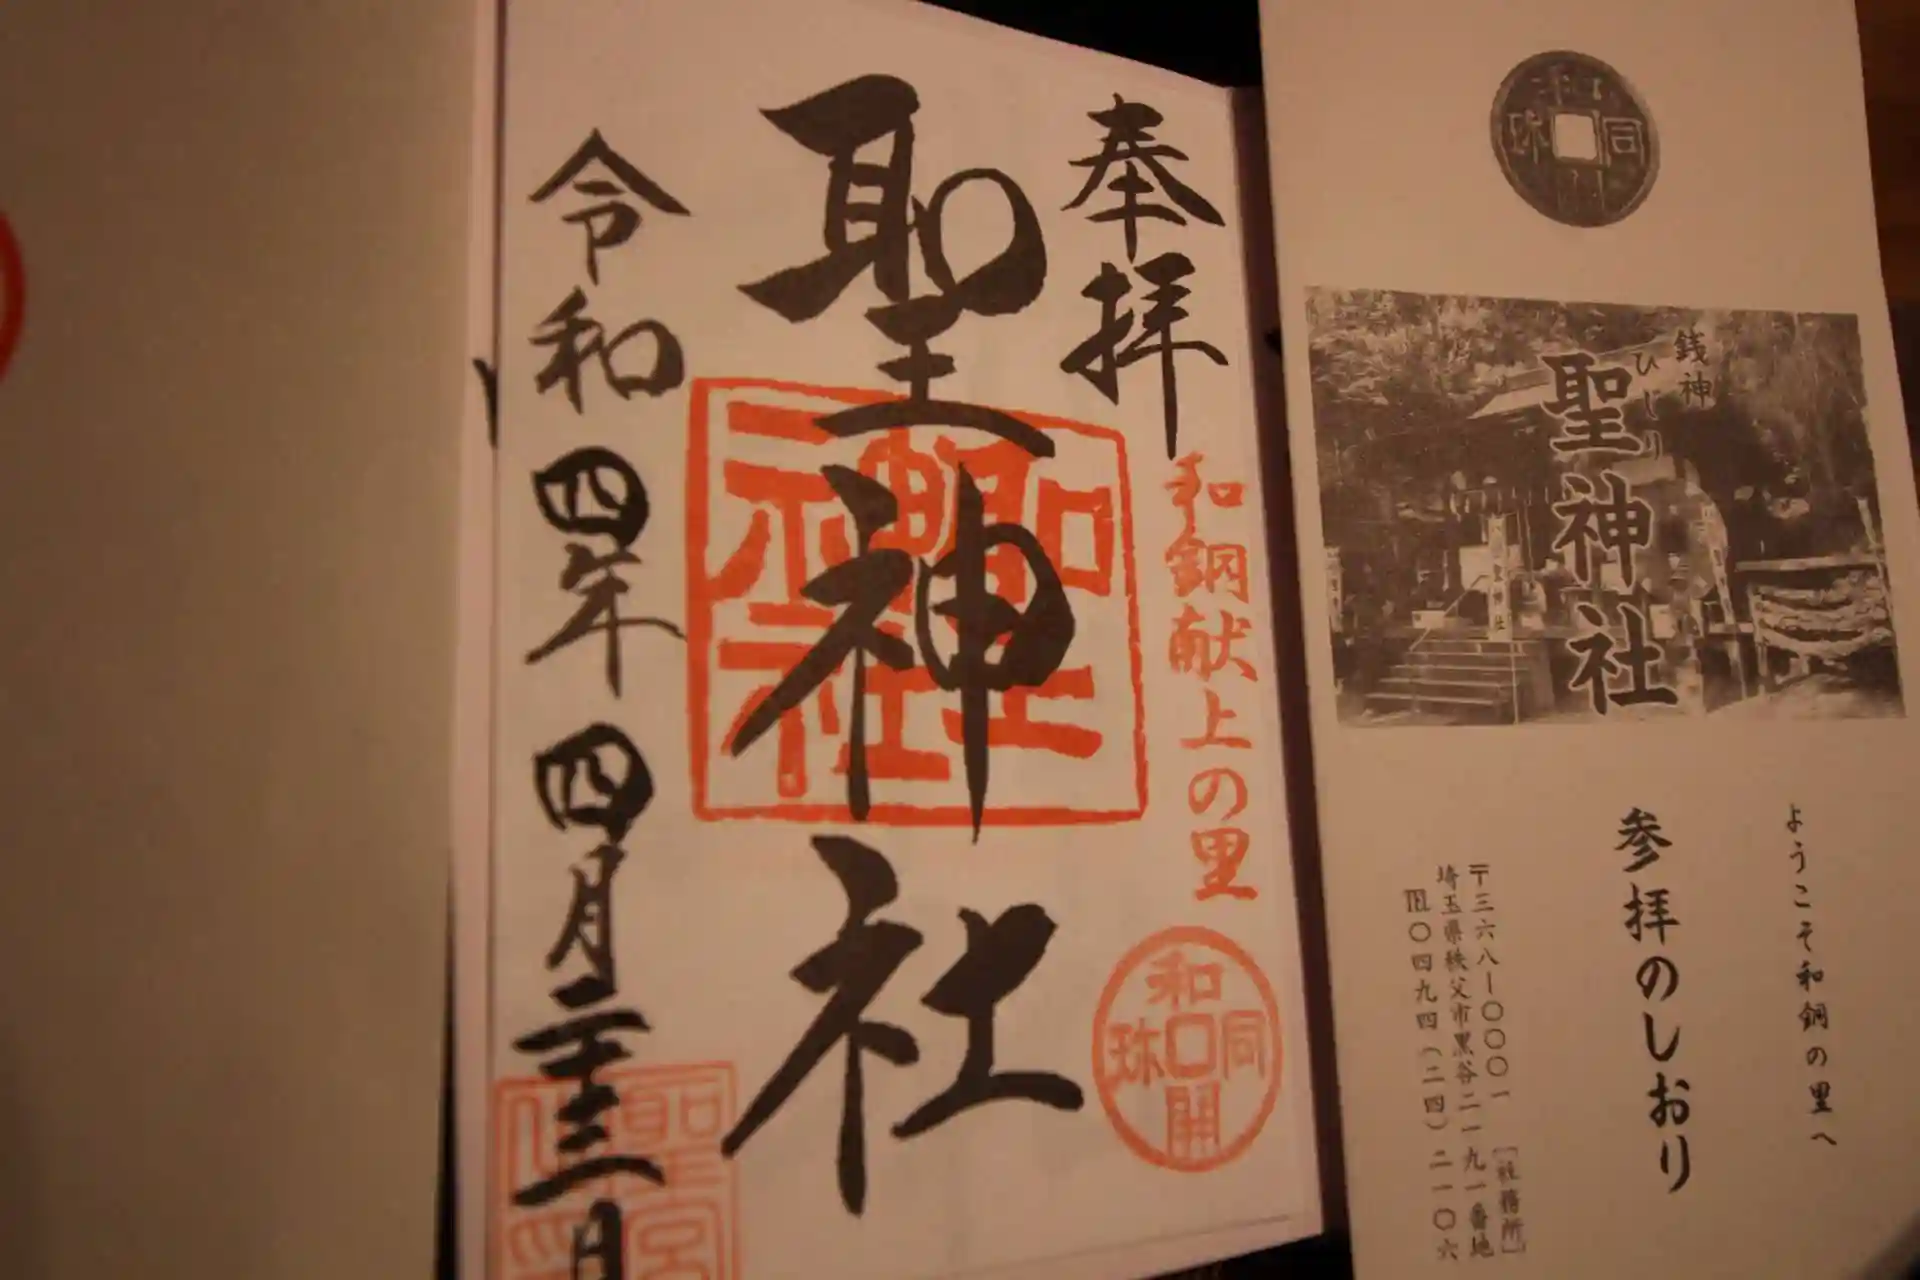 奉拝
和銅献上の里
和同開珎
聖神社
聖神社
令和四年四月二十三日
和同開珎
銭神
ひじり
聖神社
ようこそ和銅の里へ
参拝のしおり
〒三六八ー〇〇〇一 [社務所]
埼玉県秩父市黒谷二一九一番地
TEL〇四九四(二四)二一〇六